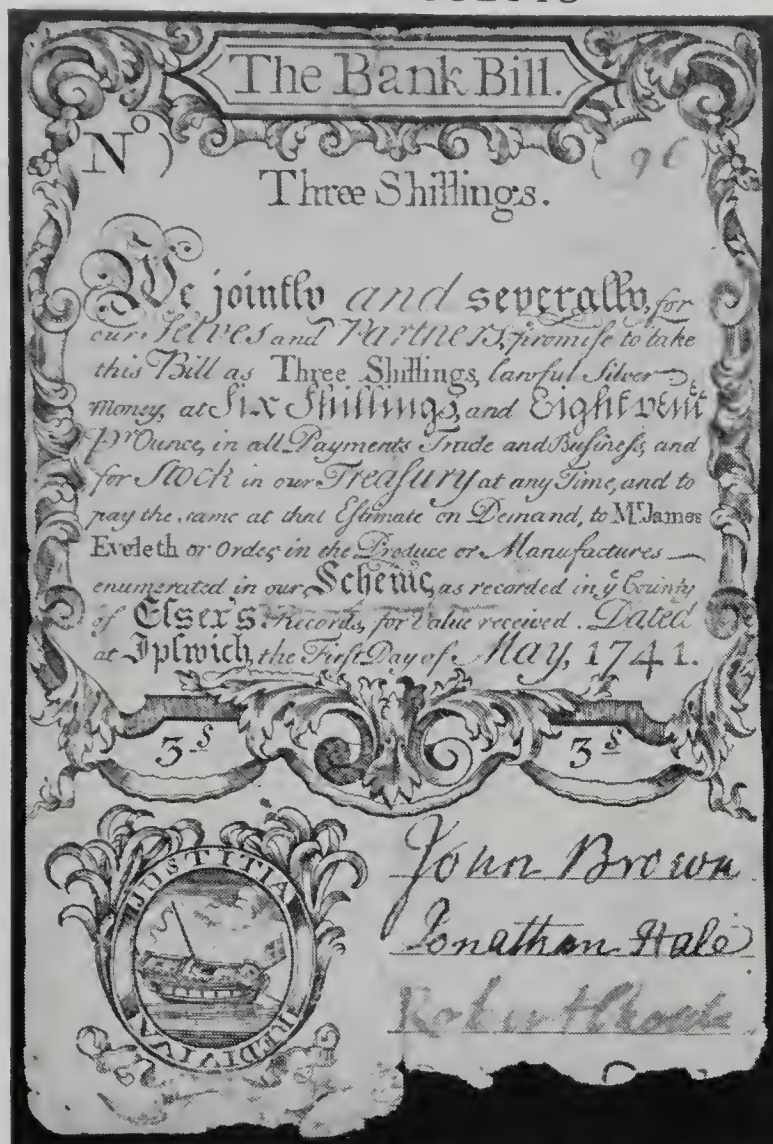 The Bank Bill.
No) (96)
Three Shillings.
We jointly and severally, for
our selves and Partners, promise to take
this Bill as Three Shillings, lawful Silver
Money, at Six Shillings, and Eight pence
pr Ounce, in all Payments Trade and Business, and
for Stock in our Treasury at any Time, and to
pay the same at that Estimate on Demand, to Mr James
Eveleth or Order, in the Produce or Manufactures
enumerated in our Scheme, as recorded in ye County
of Essex's Records, for Value received. Dated
at Ipswich, the First Day of May, 1741.
3s 3s
JUSTITIA
REDIVIVA
John Brown
Jonathan Hale
Robert Choate